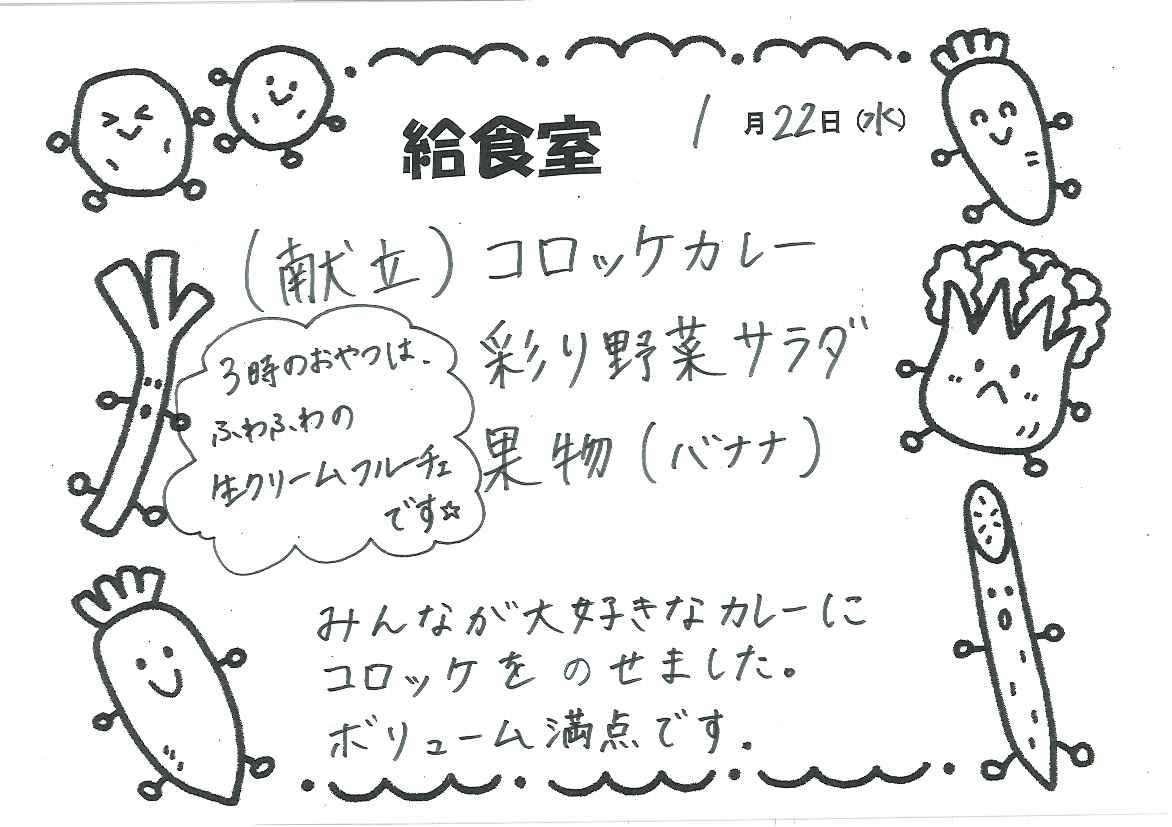 給食室
1月22日(水)
(献立) コロッケカレー
彩り野菜サラダ
果物(バナナ)
3時のおやつは、
ふわふわの
生クリームフルーチェ
です☆
みんなが大好きなカレーに
コロッケをのせました。
ボリューム満点です.